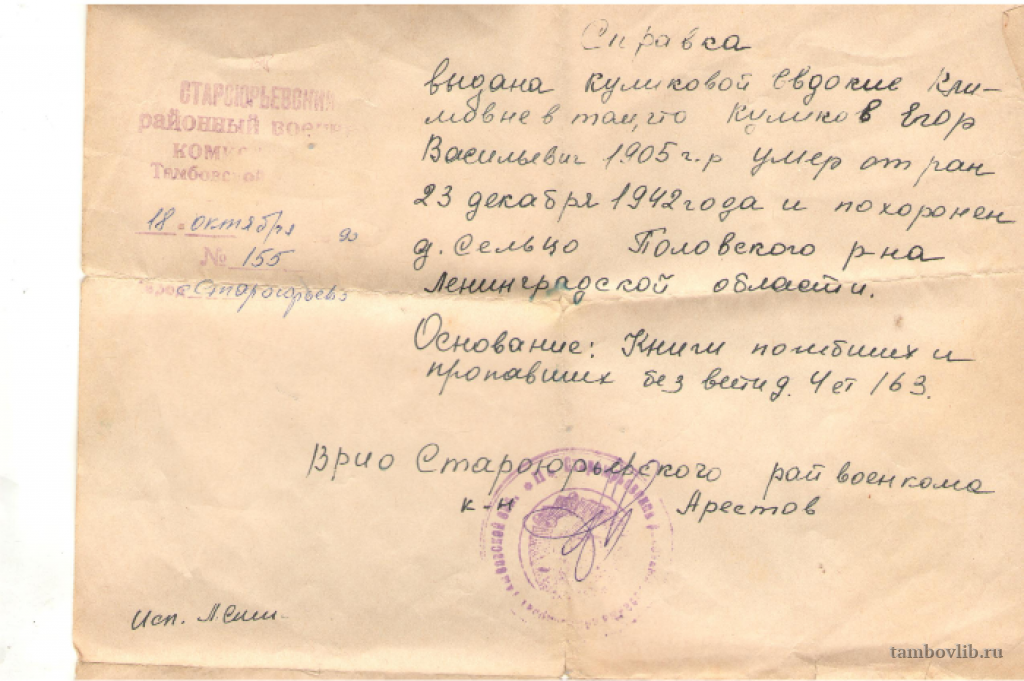 Справка
СТАРОЮРЬЕВСКИЙ
районный воен
ком
Тамбовской
18 октября 90
№ 155
Староюрьево
выдана Куликовой Евдокие Кли-
мовне в том, что Куликов Егор
Васильевич 1905 г.р умер от ран
23 декабря 1942 года и похоронен
д. Сельцо Половского р-на
Ленинградской области.
Основание: Книги погибших и
пропавших без вести д. 4 ст 163.
Врио Староюрьевского райвоенкома
к-н Арестов
Исп.
tambovlib.ru